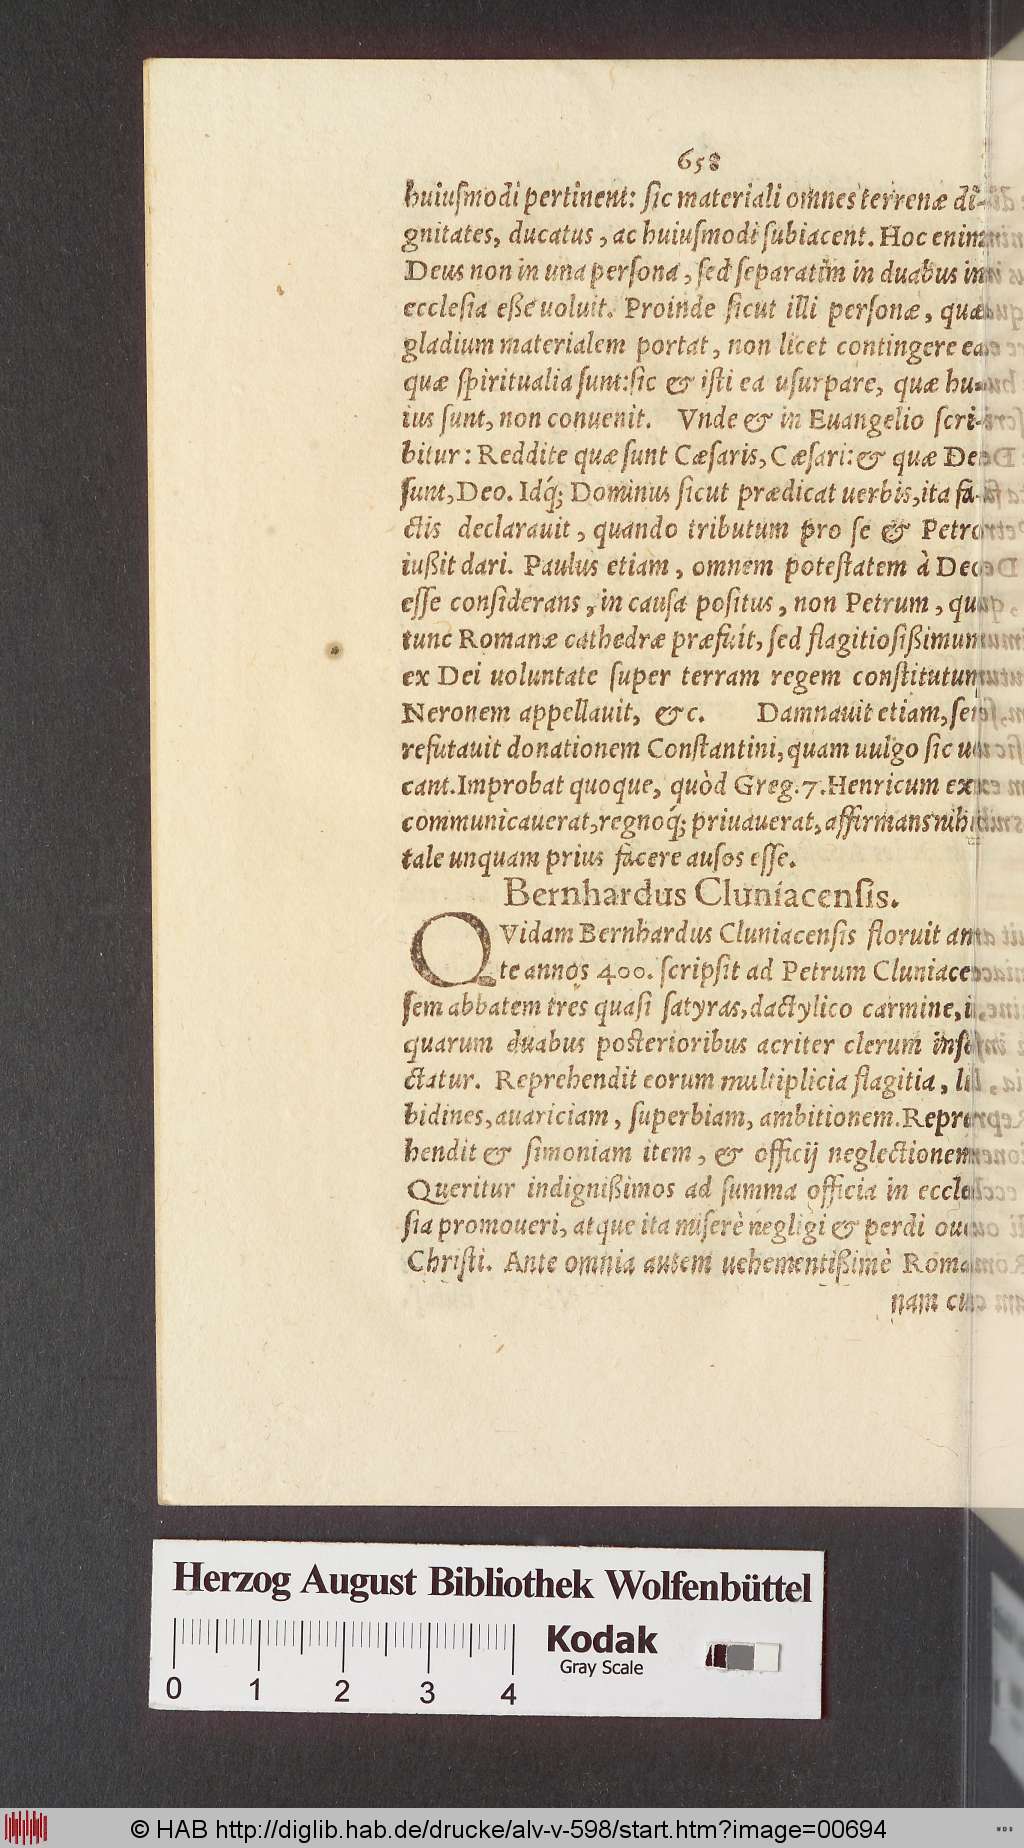 658
huiuſmodi pertinent: ſic materiali omnes terrenæ di-
gnitates, ducatus, ac huiuſmodi ſubiacent. Hoc enim
Deus non in una perſona, ſed ſeparatim in duabus in
eccleſia eße uoluit. Proinde ſicut illi perſonæ, quæ
gladium materialem portat, non licet contingere ea
quæ ſpiritualia ſunt: ſic & iſti ea uſurpare, quæ hu-
ius ſunt, non conuenit. Vnde & in Euangelio ſcri-
bitur: Reddite quæ ſunt Cæſaris, Cæſari: & quæ Dei
ſunt, Deo. Idq́; Dominus ſicut prædicat uerbis, ita fa-
ctis declarauit, quando tributum pro ſe & Petro
iußit dari. Paulus etiam, omnem poteſtatem à Deo
eſſe conſiderans, in cauſa poſitus, non Petrum, qui
tunc Romanæ cathedræ præfuit, ſed flagitioſißimum
ex Dei uoluntate ſuper terram regem conſtitutum
Neronem appellauit, &c. Damnauit etiam,
refutauit donationem Conſtantini, quam uulgo ſic uo
cant. Improbat quoque, quòd Greg. 7. Henricum ex
communicauerat, regnoq́; priuauerat, affirmans nihil
tale unquam prius facere auſos eſſe.
Bernhardus Cluniacenſis.
QVidam Bernhardus Cluniacenſis floruit an
te annos 400. ſcripſit ad Petrum Cluniacen
ſem abbatem tres quaſi ſatyras, dactylico carmine, in
quarum duabus poſterioribus acriter clerum inſe
ctatur. Reprehendit eorum multiplicia flagitia, li
bidines, auariciam, ſuperbiam, ambitionem. Repre
hendit & ſimoniam item, & officij neglectionem
Queritur indignißimos ad ſumma officia in eccle
ſia promoueri, atque ita miſerè negligi & perdi oues
Chriſti. Ante omnia autem uehementißimè Roma
nam cu
Herzog August Bibliothek Wolfenbüttel
Kodak
Gray Scale
0 1 2 3 4
© HAB http://diglib.hab.de/drucke/alv-v-598/start.htm?image=00694